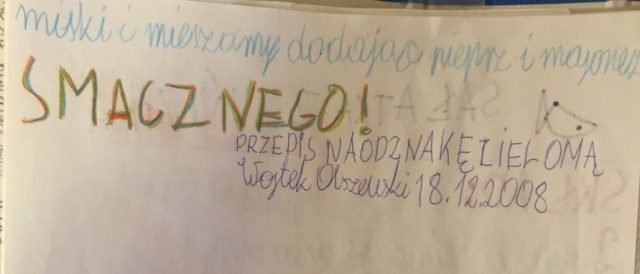 miski i mieszamy dodając pieprz i majonez
SMACZNEGO!
PRZEPIS NA ODZNAKĘ ZIELOMĄ
Wojtek Olszewski 18.12.2008